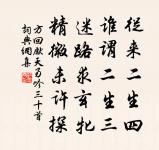 從來二生四
誰謂二生三
迷路求玄牝
精微未許探
方回獻天易吟三十首
詞典網集